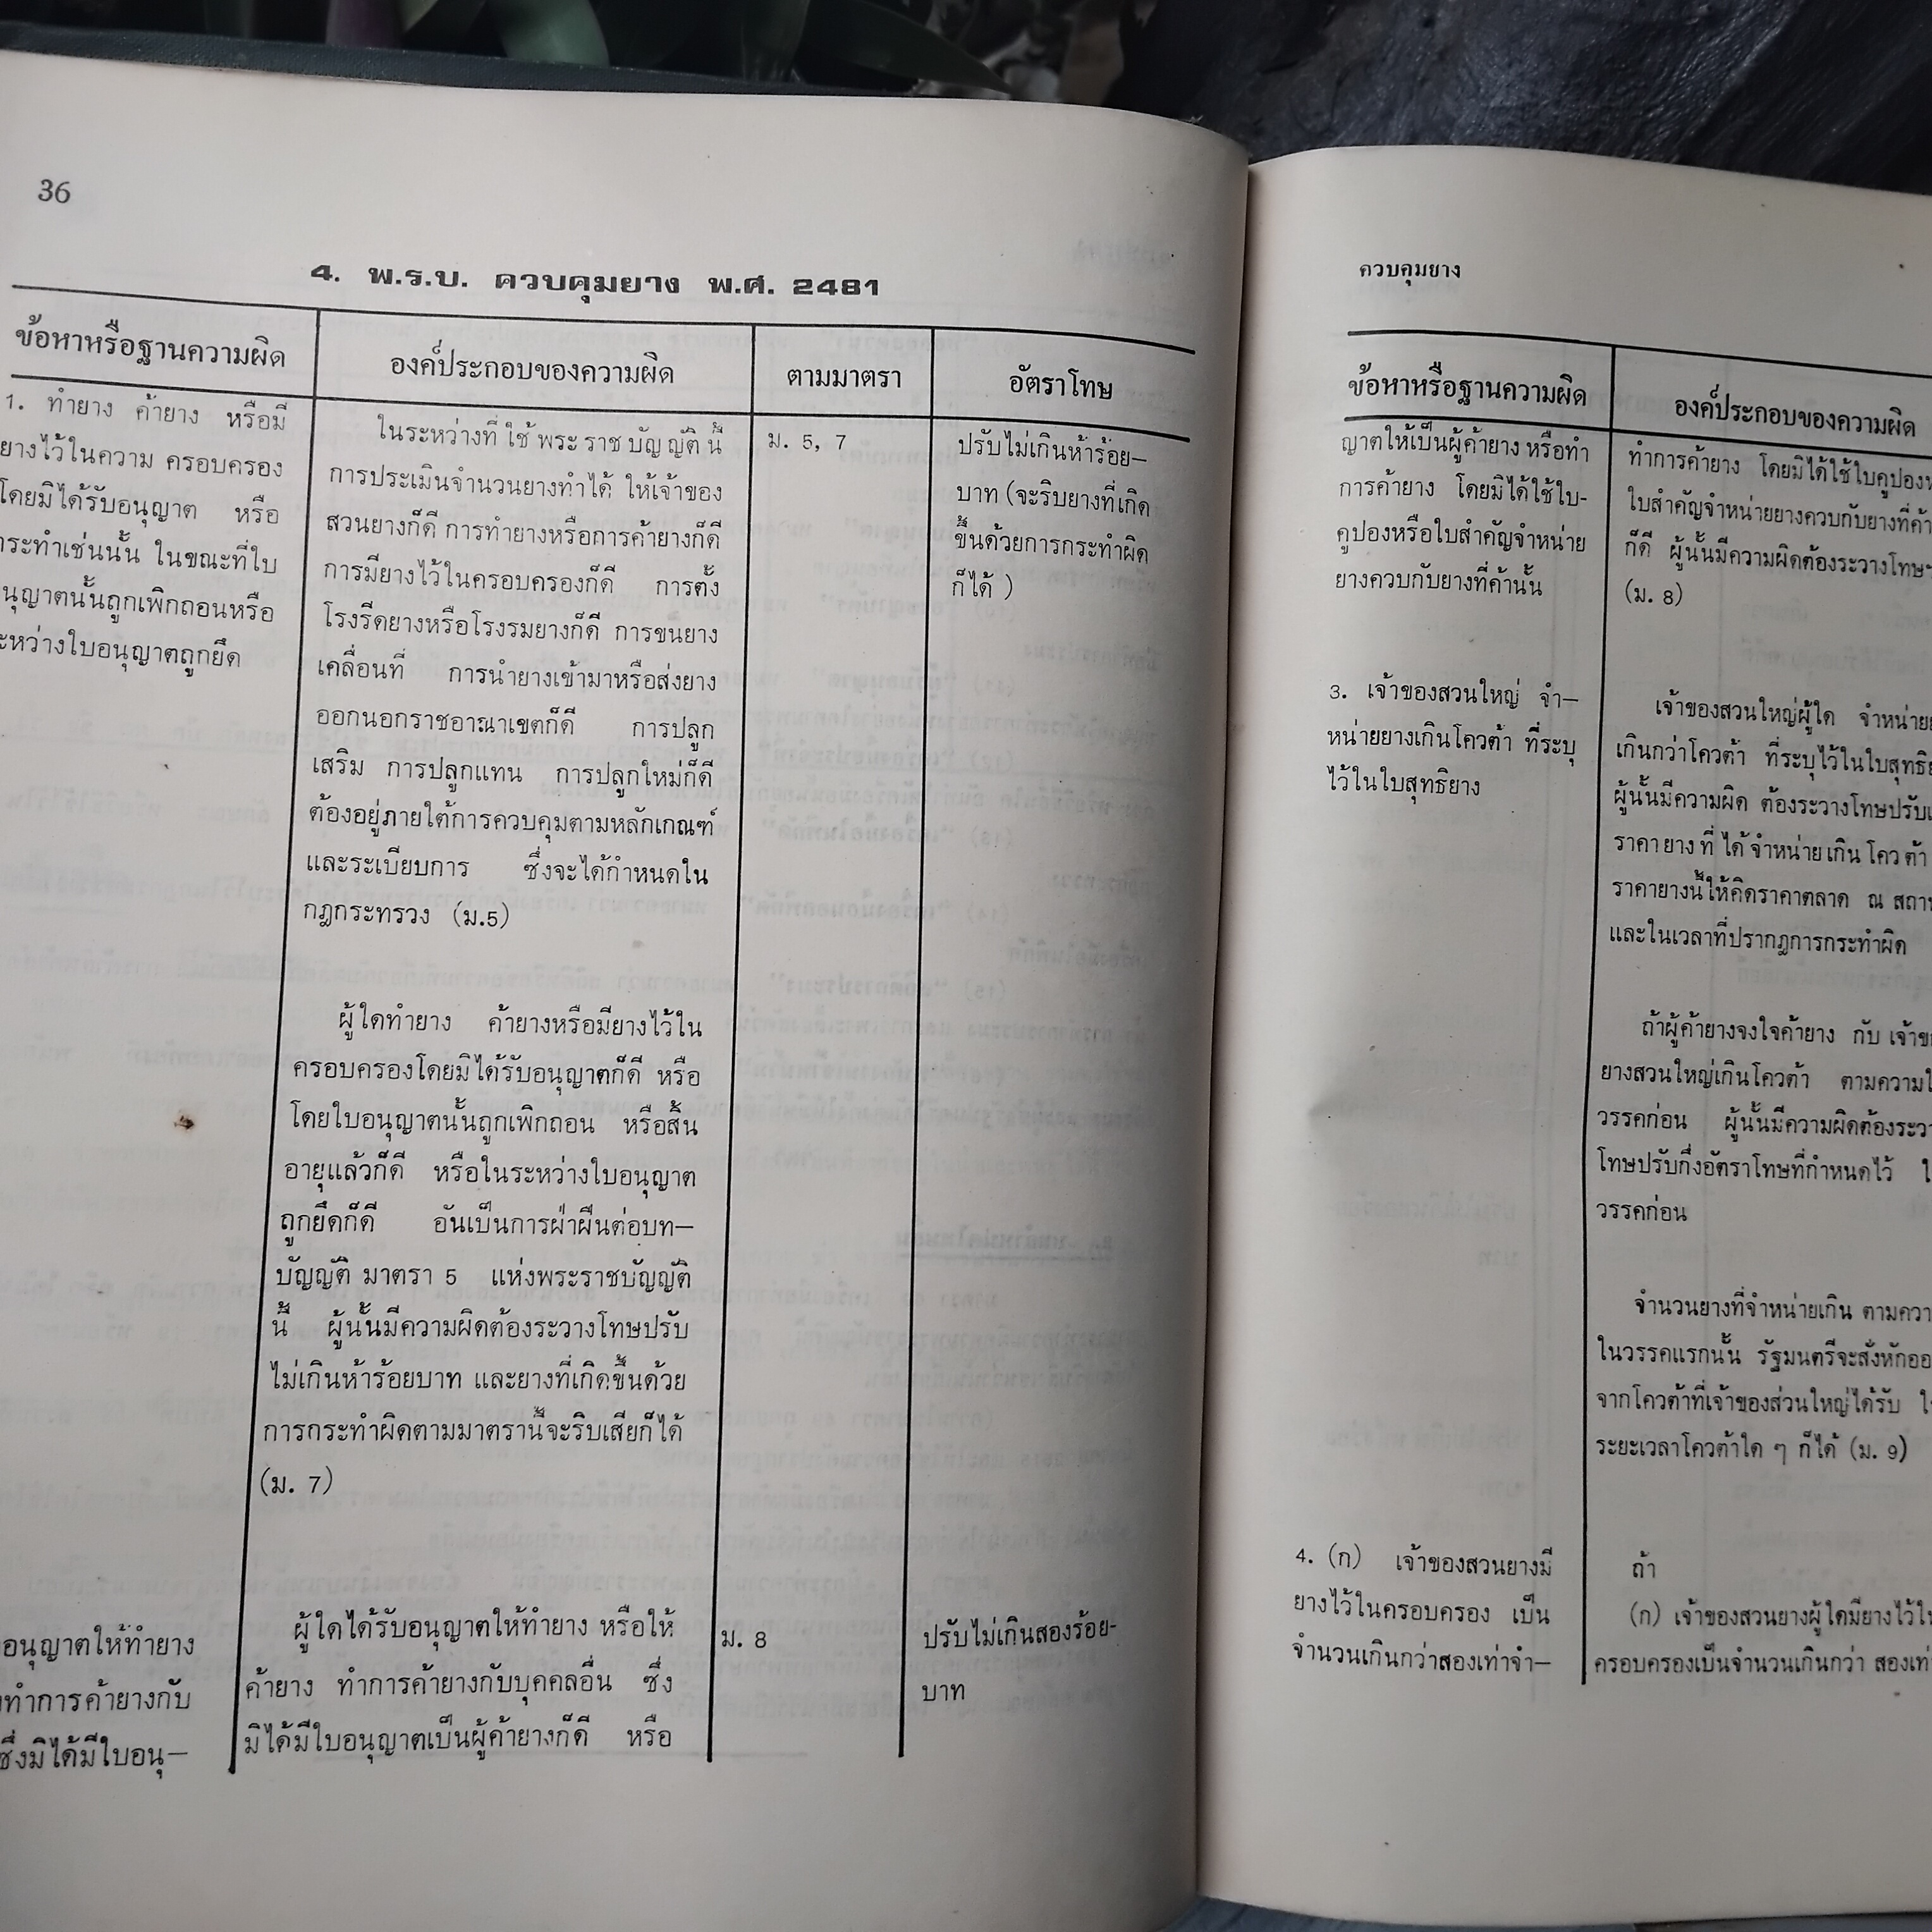 36
4. พ.ร.บ. ควบคุมยาง พ.ศ. 2481
ข้อหาหรือฐานความผิด
องค์ประกอบของความผิด
ตามมาตรา
อัตราโทษ
1. ทำยาง ค้ายาง หรือมี
ยางไว้ในความ ครอบครอง
โดยมิได้รับอนุญาต หรือ
กระทำเช่นนั้น ในขณะที่ใบ
อนุญาตนั้นถูกเพิกถอนหรือ
ระหว่างใบอนุญาตถูกยึด
ในระหว่างที่ ใช้ พระ ราช บัญ ญัติ นี้
การประเมินจำนวนยางทำได้ ให้เจ้าของ
สวนยางก็ดี การทำยางหรือการค้ายางก็ดี
การมียางไว้ในครอบครองก็ดี การตั้ง
โรงรีดยางหรือโรงรมยางก็ดี การขนยาง
เคลื่อนที่ การนำยางเข้ามาหรือส่งยาง
ออกนอกราชอาณาเขตก็ดี การปลูก
เสริม การปลูกแทน การปลูกใหม่ก็ดี
ต้องอยู่ภายใต้การควบคุมตามหลักเกณฑ์
และระเบียบการ ซึ่งจะได้กำหนดใน
กฎกระทรวง (ม.5)
ผู้ใดทำยาง ค้ายางหรือมียางไว้ใน
ครอบครองโดยมิได้รับอนุญาตก็ดี หรือ
โดยใบอนุญาตนั้นถูกเพิกถอน หรือสิ้น
อายุแล้วก็ดี หรือในระหว่างใบอนุญาต
ถูกยึดก็ดี อันเป็นการฝ่าฝืนต่อบท—
บัญญัติ มาตรา 5 แห่งพระราชบัญญัติ
นี้ ผู้นั้นมีความผิดต้องระวางโทษปรับ
ไม่เกินห้าร้อยบาท และยางที่เกิดขึ้นด้วย
การกระทำผิดตามมาตรานี้จะริบเสียก็ได้
(ม. 7)
ม. 5, 7
ปรับไม่เกินห้าร้อย—
บาท (จะริบยางที่เกิด
ขึ้นด้วยการกระทำผิด
ก็ได้ )
อนุญาตให้ทำยาง
ทำการค้ายางกับ
ซึ่งมิได้มีใบอนุ—
ผู้ใดได้รับอนุญาตให้ทำยาง หรือให้
ค้ายาง ทำการค้ายางกับบุคคลอื่น ซึ่ง
มิได้มีใบอนุญาตเป็นผู้ค้ายางก็ดี หรือ
ม. 8
ปรับไม่เกินสองร้อย-
บาท
ควบคุมยาง
ข้อหาหรือฐานความผิด
องค์ประกอบของความผิด
ญาตให้เป็นผู้ค้ายาง หรือทำ
การค้ายาง โดยมิได้ใช้ใบ-
คูปองหรือใบสำคัญจำหน่าย
ยางควบกับยางที่ค้านั้น
ทำการค้ายาง โดยมิได้ใช้ใบคูปอง
ใบสำคัญจำหน่ายยางควบกับยางที่ค้า
ก็ดี ผู้นั้นมีความผิดต้องระวางโทษ
(ม. 8)
3. เจ้าของสวนใหญ่ จำ—
หน่ายยางเกินโควต้า ที่ระบุ
ไว้ในใบสุทธิยาง
เจ้าของสวนใหญ่ผู้ใด จำหน่าย
เกินกว่าโควต้า ที่ระบุไว้ในใบสุทธิ
ผู้นั้นมีความผิด ต้องระวางโทษปรับ
ราคา ยาง ที่ ได้ จำหน่าย เกิน โคว ต้า
ราคายางนี้ให้คิดราคาตลาด ณ
และในเวลาที่ปรากฎการกระทำผิด
ถ้าผู้ค้ายางจงใจค้ายาง กับ
ยางสวนใหญ่เกินโควต้า ตามความ
วรรคก่อน ผู้นั้นมีความผิดต้อง
โทษปรับกึ่งอัตราโทษที่กำหนดไว้
วรรคก่อน
จำนวนยางที่จำหน่ายเกิน ตาม
ในวรรคแรกนั้น รัฐมนตรีจะสั่งหัก
จากโควต้าที่เจ้าของส่วนใหญ่ได้รับ
ระยะเวลาโควต้าใด ๆ ก็ได้ (ม. 9)
4. (ก) เจ้าของสวนยางมี
ยางไว้ในครอบครอง เป็น
จำนวนเกินกว่าสองเท่าจำ—
ถ้า
(ก) เจ้าของสวนยางผู้ใดมียางไว้
ครอบครองเป็นจำนวนเกินกว่า